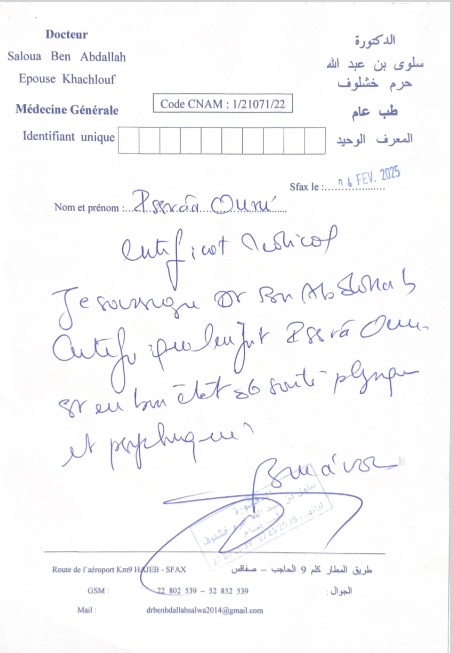 Docteur
Saloua Ben Abdallah
Epouse Khachlouf
Médecine Générale
الدكتورة
سلوى بن عبد الله
حرم خشلوف
طب عام
Code CNAM : 1/21071/22
Identifiant unique
المعرف الوحيد
Sfax le : FEV. 2025
Nom et prénom :
Certificat Médical
Je soussigné Dr Ben Abdallah
Certifie que l'enfant
est en bon état de santé physique
et psychique
Route de l'aéroport Km9 HAJEB - SFAX
طريق المطار كلم 9 الحاجب – صفاقس
GSM : 22 802 539 – 52 852 539 الجوال :
Mail : drbenbdallahsalwa2014@gmail.com